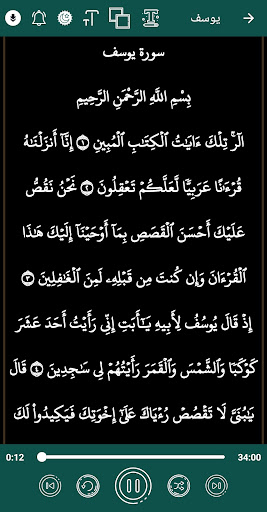 يوسف
سورة يوسف
بِسْمِ اللَّهِ الرَّحْمَنِ الرَّحِيمِ
الٓرۚ تِلْكَ ءَايَٰتُ ٱلْكِتَٰبِ ٱلْمُبِينِ ١ إِنَّآ أَنزَلْنَٰهُ
قُرْءَٰنًا عَرَبِيًّا لَّعَلَّكُمْ تَعْقِلُونَ ٢ نَحْنُ نَقُصُّ
عَلَيْكَ أَحْسَنَ ٱلْقَصَصِ بِمَآ أَوْحَيْنَآ إِلَيْكَ هَٰذَا
ٱلْقُرْءَانَ وَإِن كُنتَ مِن قَبْلِهِۦ لَمِنَ ٱلْغَٰفِلِينَ ٣
إِذْ قَالَ يُوسُفُ لِأَبِيهِ يَٰٓأَبَتِ إِنِّى رَأَيْتُ أَحَدَ عَشَرَ
كَوْكَبًا وَٱلشَّمْسَ وَٱلْقَمَرَ رَأَيْتُهُمْ لِى سَٰجِدِينَ ٤ قَالَ
يَٰبُنَىَّ لَا تَقْصُصْ رُءْيَاكَ عَلَىٰٓ إِخْوَتِكَ فَيَكِيدُوا۟ لَكَ
0:12 34:00